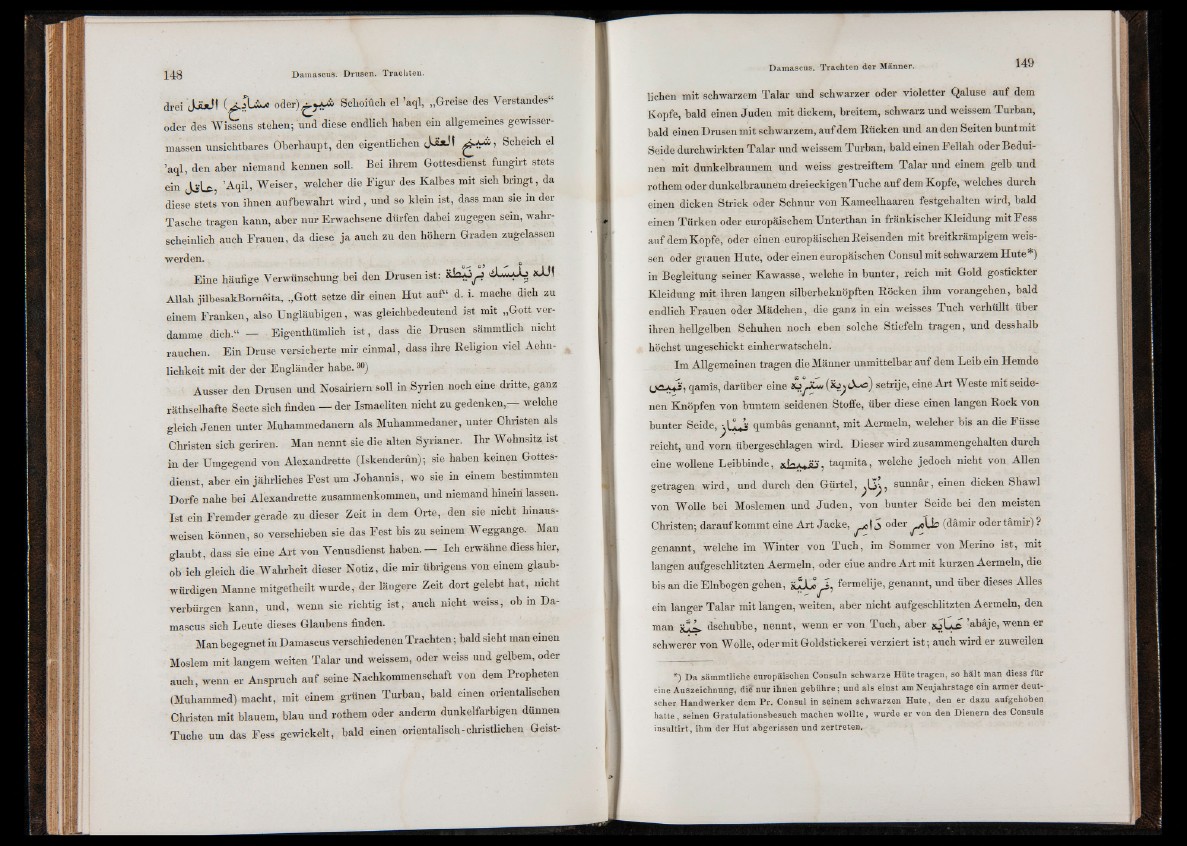 148 Damascus. Drusen. Trachten.
drei العقل (مشايخ oder) شيوخ Schoiûch el 'aql, „Greise des Verstandes“
oder des Wissens stehen; und diese endlich haben ein allgemeines gewisser-
massen unsichtbares Oberhaupt, den eigentlichen شيخ العقل, Scheich el
'aql, den aber niemand kennen soll. Bei ihrem Gottesdienst fungirt stets
ein عاقل, 'Aqil, Weiser, welcher die Figur des Kalbes mit sich bringt, da
diese stets von ihnen aufbewahrt wird, und so klein ist, dass man sie in der
Tasche tragen kann, aber nur Erwachsene dürfen dabei zugegen sein, wahr-
scheinlich auch Frauen, da diese ja auch zu den höhern Graden zugelassen
werden.
Eine häufige Verwünschung bei den Drusen ist: الله يلبسك برنيطة
Allah jilbesakBornêita, „Gott setze dir einen Hut auf“ d. i. mache dich zu
einem Franken, also Ungläubigen, was gleichbedeutend ist mit „Gott ver-
damme dich.“ — Eigenthümlich ist, dass die Drusen sämmtlich nicht
rauchen. Ein Druse versicherte mir einmal, dass ihre Religion viel Aehn-
lichkeit mit der der Engländer habe.³⁰)
Ausser den Drusen und Nosairiern soll in Syrien noch eine dritte, ganz
räthselhafte Secte sich finden — der Ismaeliten nicht zu gedenken,— welche
gleich Jenen unter Muhammedanern als Muhammedaner, unter Christen als
Christen sich geriren. Man nennt sie die alten Syrianer. Ihr Wohnsitz ist
in der Umgegend von Alexandrette (Iskenderûn); sie haben keinen Gottes-
dienst, aber ein jährliches Fest um Johannis, wo sie in einem bestimmten
Dorfe nahe bei Alexandrette zusammenkommen, und niemand hinein lassen.
Ist ein Fremder gerade zu dieser Zeit in dem Orte, den sie nicht hinaus-
weisen können, so verschieben sie das Fest bis zu seinem Weggange. Man
glaubt, dass sie eine Art von Venusdienst haben. — Ich erwähne diess hier,
ob ich gleich die Wahrheit dieser Notiz, die mir übrigens von einem glaub-
würdigen Manne mitgetheilt wurde, der längere Zeit dort gelebt hat, nicht
verbürgen kann, und, wenn sie richtig ist, auch nicht weiss, ob in Da-
mascus sich Leute dieses Glaubens finden.
Man begegnet in Damascus verschiedenen Trachten; bald sieht man einen
Moslem mit langem weiten Talar und weissem, oder weiss und gelbem, oder
auch, wenn er Anspruch auf seine Nachkommenschaft von dem Propheten
(Muhammed) macht, mit einem grünen Turban, bald einen orientalischen
Christen mit blauem, blau und rothem oder anderm dunkelfarbigen dünnen
Tuche um das Fess gewickelt, bald einen orientalisch-christlichen Geist-
Damascus. Trachten der Männer. 149
lichen mit schwarzem Talar und schwarzer oder violetter Qaluse auf dem
Kopfe, bald einen Juden mit dickem, breitem, schwarz und weissem Turban,
bald einen Drusen mit schwarzem, auf dem Rücken und an den Seiten bunt mit
Seide durchwirkten Talar und weissem Turban, bald einen Fellah oder Bedui-
nen mit dunkelbraunem und weiss gestreiftem Talar und einem gelb und
rothem oder dunkelbraunem dreieckigen Tuche auf dem Kopfe, welches durch
einen dicken Strick oder Schnur von Kameelhaaren festgehalten wird, bald
einen Türken oder europäischem Unterthan in fränkischer Kleidung mit Fess
auf dem Kopfe, oder einen europäischen Reisenden mit breitkrämpigem weis-
sen oder grauen Hute, oder einen europäischen Consul mit schwarzem Hute*)
in Begleitung seiner Kawasse, welche in bunter, reich mit Gold gostickter
Kleidung mit ihren langen silberbeknöpften Röcken ihm vorangehen, bald
endlich Frauen oder Mädchen, die ganz in ein weisses Tuch verhüllt über
ihren hellgelben Schuhen noch eben solche Stiefeln tragen, und desshalb
höchst ungeschickt einherwatscheln.
Im Allgemeinen tragen die Männer unmittelbar auf dem Leib ein Hemde
قميص, qamîs, darüber eine سترية (صدرية) setrije, eine Art Weste mit seide-
nen Knöpfen von buntem seidenen Stoffe, über diese einen langen Rock von
bunter Seide, قمباز qumbâs genannt, mit Aermeln, welcher bis an die Füsse
reicht, und vorn übergeschlagen wird. Dieser wird zusammengehalten durch
eine wollene Leibbinde, تقميطة, taqmita, welche jedoch nicht von Allen
getragen wird, und durch den Gürtel, زنار, sunnâr, einen dicken Shawl
von Wolle bei Moslemen und Juden, von bunter Seide bei den meisten
Christen; darauf kommt eine Art Jacke, دامر oder طامر (dâmir oder tâmir)?
genannt, welche im Winter von Tuch, im Sommer von Merino ist, mit
langen aufgeschlitzten Aermeln, oder eine andre Art mit kurzen Aermeln, die
bis an die Elnbogen gehen, فرملية, fermelije, genannt, und über dieses Alles
ein langer Talar mit langen, weiten, aber nicht aufgeschlitzten Aermeln, den
man جبة dschubbe, nennt, wenn er von Tuch, aber عباية 'abâje, wenn er
schwerer von Wolle, oder mit Goldstickerei verziert ist; auch wird er zuweilen
*) Da sämmtliche europäischen Consuln schwarze Hüte tragen, so hält man diess für
eine Auszeichnung, die nur ihnen gebühre; und als einst am Neujahrstage ein armer deut-
scher Handwerker dem Pr. Consul in seinem schwarzen Hute, den er dazu aufgehoben
hatte, seinen Gratulationsbesuch machen wollte, wurde er von den Dienern des Consuls
insultirt, ihm der Hut abgerissen und zertreten.